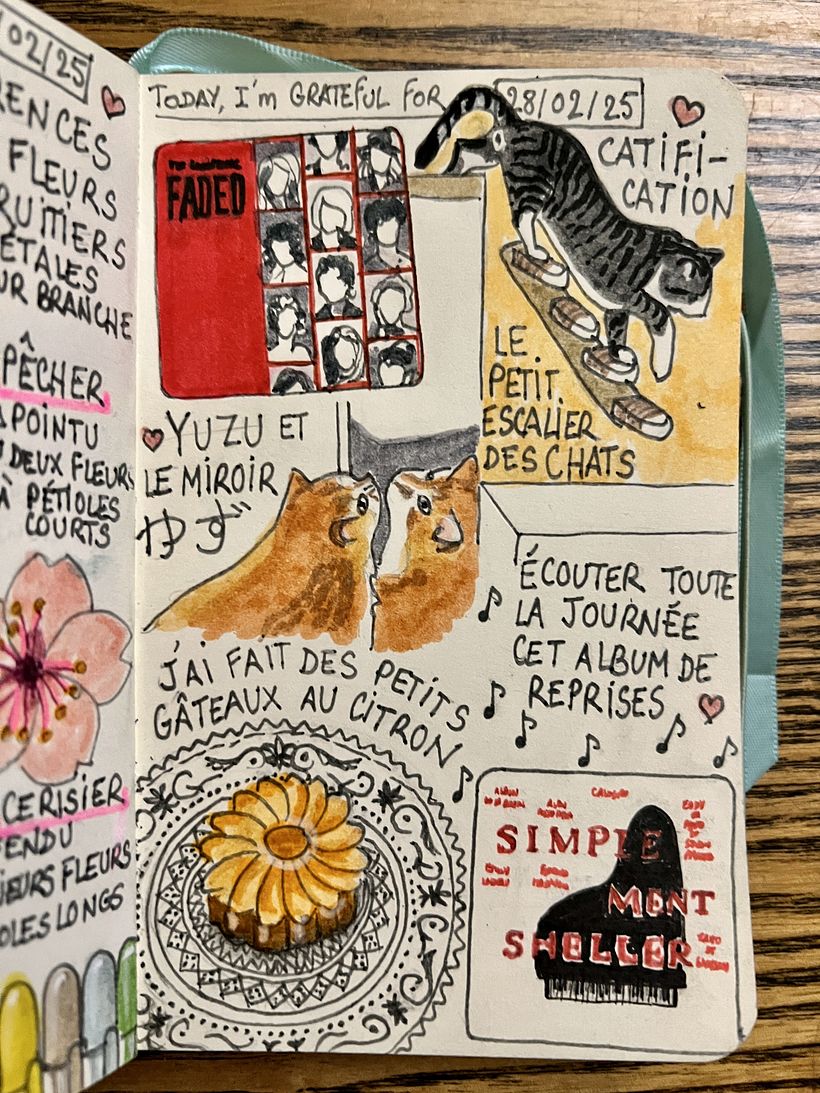 02/25
RENCES
FLEURS
RUITIERS
ÉTALES
UR BRANCHE
PÊCHER
POINTU
DEUX FLEURS
À PÉTIOLES
COURTS
CERISIER
FENDU
IEURS FLEURS
OLES LONGS
TODAY, I'M GRATEFUL FOR 28/02/25
FADED
CATIFI-
CATION
LE
PETIT
ESCALIER
DES CHATS
YUZU ET
LE MIROIR
ゆず
ÉCOUTER TOUTE
LA JOURNÉE
CET ALBUM DE
REPRISES
J'AI FAIT DES PETITS
GÂTEAUX AU CITRON
SIMPLE
MENT
SHELLER